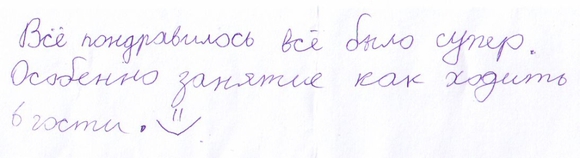 Всё пондравилось всё было супер.
Особенно занятие как ходить
в гости.